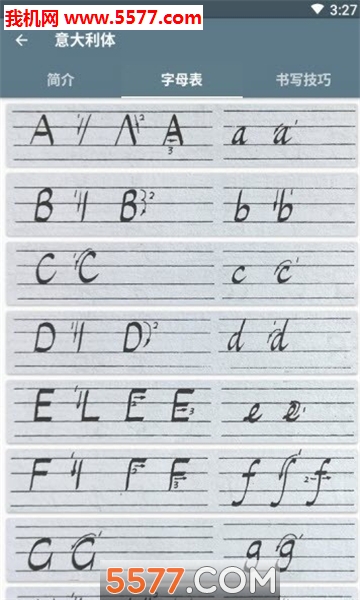 我机网
www.5577.com
3:27
意大利体
简介 字母表 书写技巧
A A a a
B B b b
C C c c
D D d d
E L E E e e
F F F f f
G G g g
5577.COM